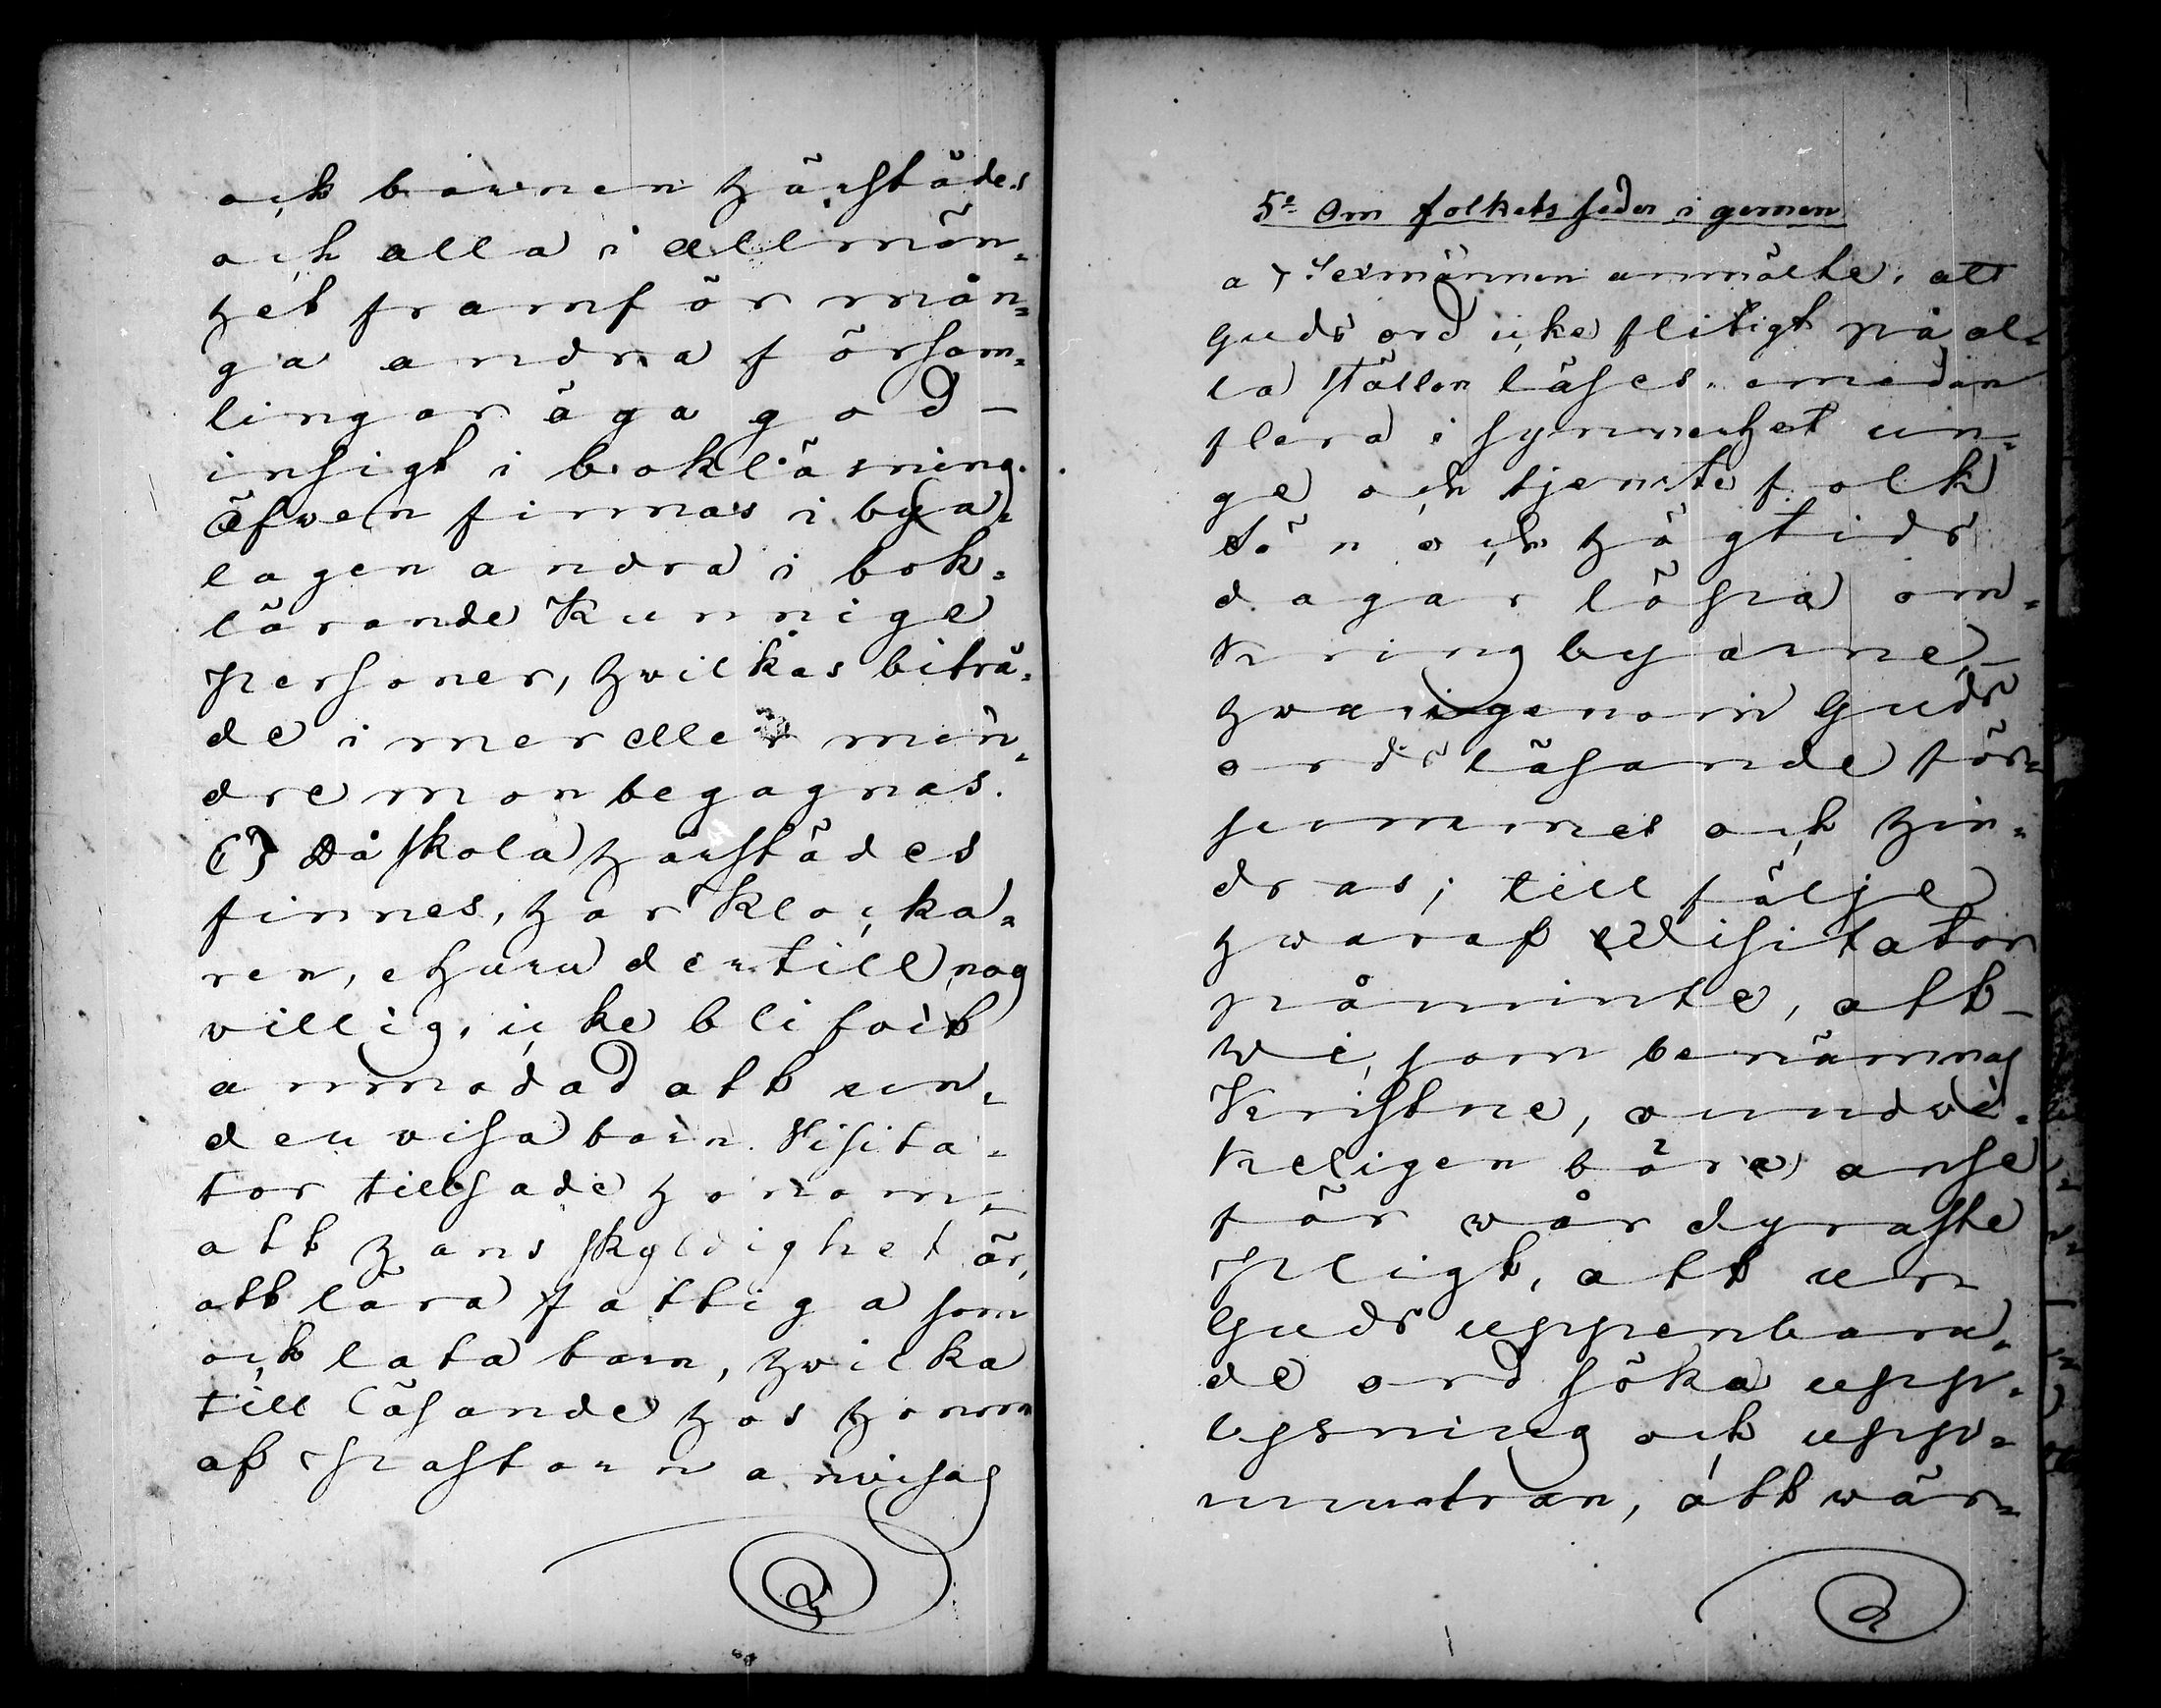 och barnen härstädes
och alla i allmän-
het framför mån-
ga andra försam-
lingar äga god
insigt i bokläsning.
Äfwen finnas i bya-
lagen andra i bok-
lärande kunnige
personer, hwilkas biträ-
de i mer eller min-
dre mon begagnas.
Då skola härstädes
finnes, har klocka-
ren, ehuru dertill nog
villig, icke blifvit
anmodad att un-
dervisa barn. Visita-
tor tillsade honom
att hans skyldighet är,
att lära fattiga som
och lata barn, hwilka
till läsande hos honom
af pastorn anvisas
5º Om folkets seder i gemen
a) Sexmännen anmälte, att
Guds ord icke flitigt på al-
la ställen läses, emedan
flera i synnerhet un-
ge och tjenste folk
sön och högtids
dagar löpa om-
kring byarne,
hwarigenom Guds
ords läsande för-
summes och hin-
dras; till följe
hwaraf Visitator
påminte, att
We, som benämnas
Kristne, oundvi-
keligen böra anse
för wår dyraste
pligt, att ur
Guds uppenbara-
de ord söka upp-
lysning och upp-
muntran, att wår-